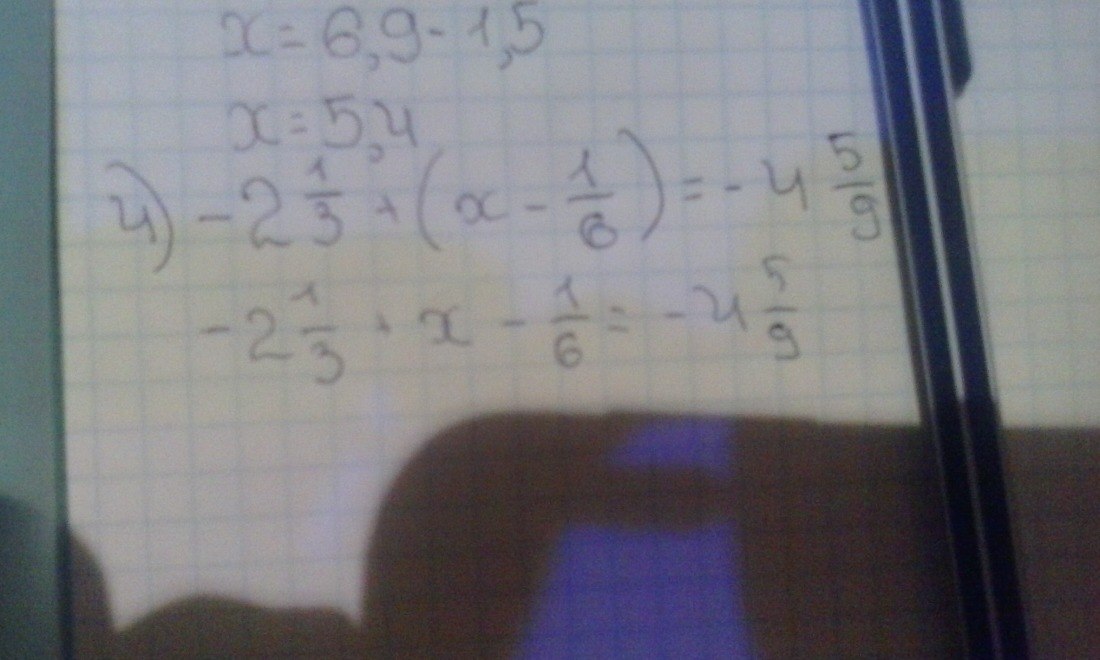 x = 6,9 - 1,5
x = 5,4
4) -2 1/3 + (x - 1/6) = -4 5/9
-2 1/3 + x - 1/6 = -4 5/9